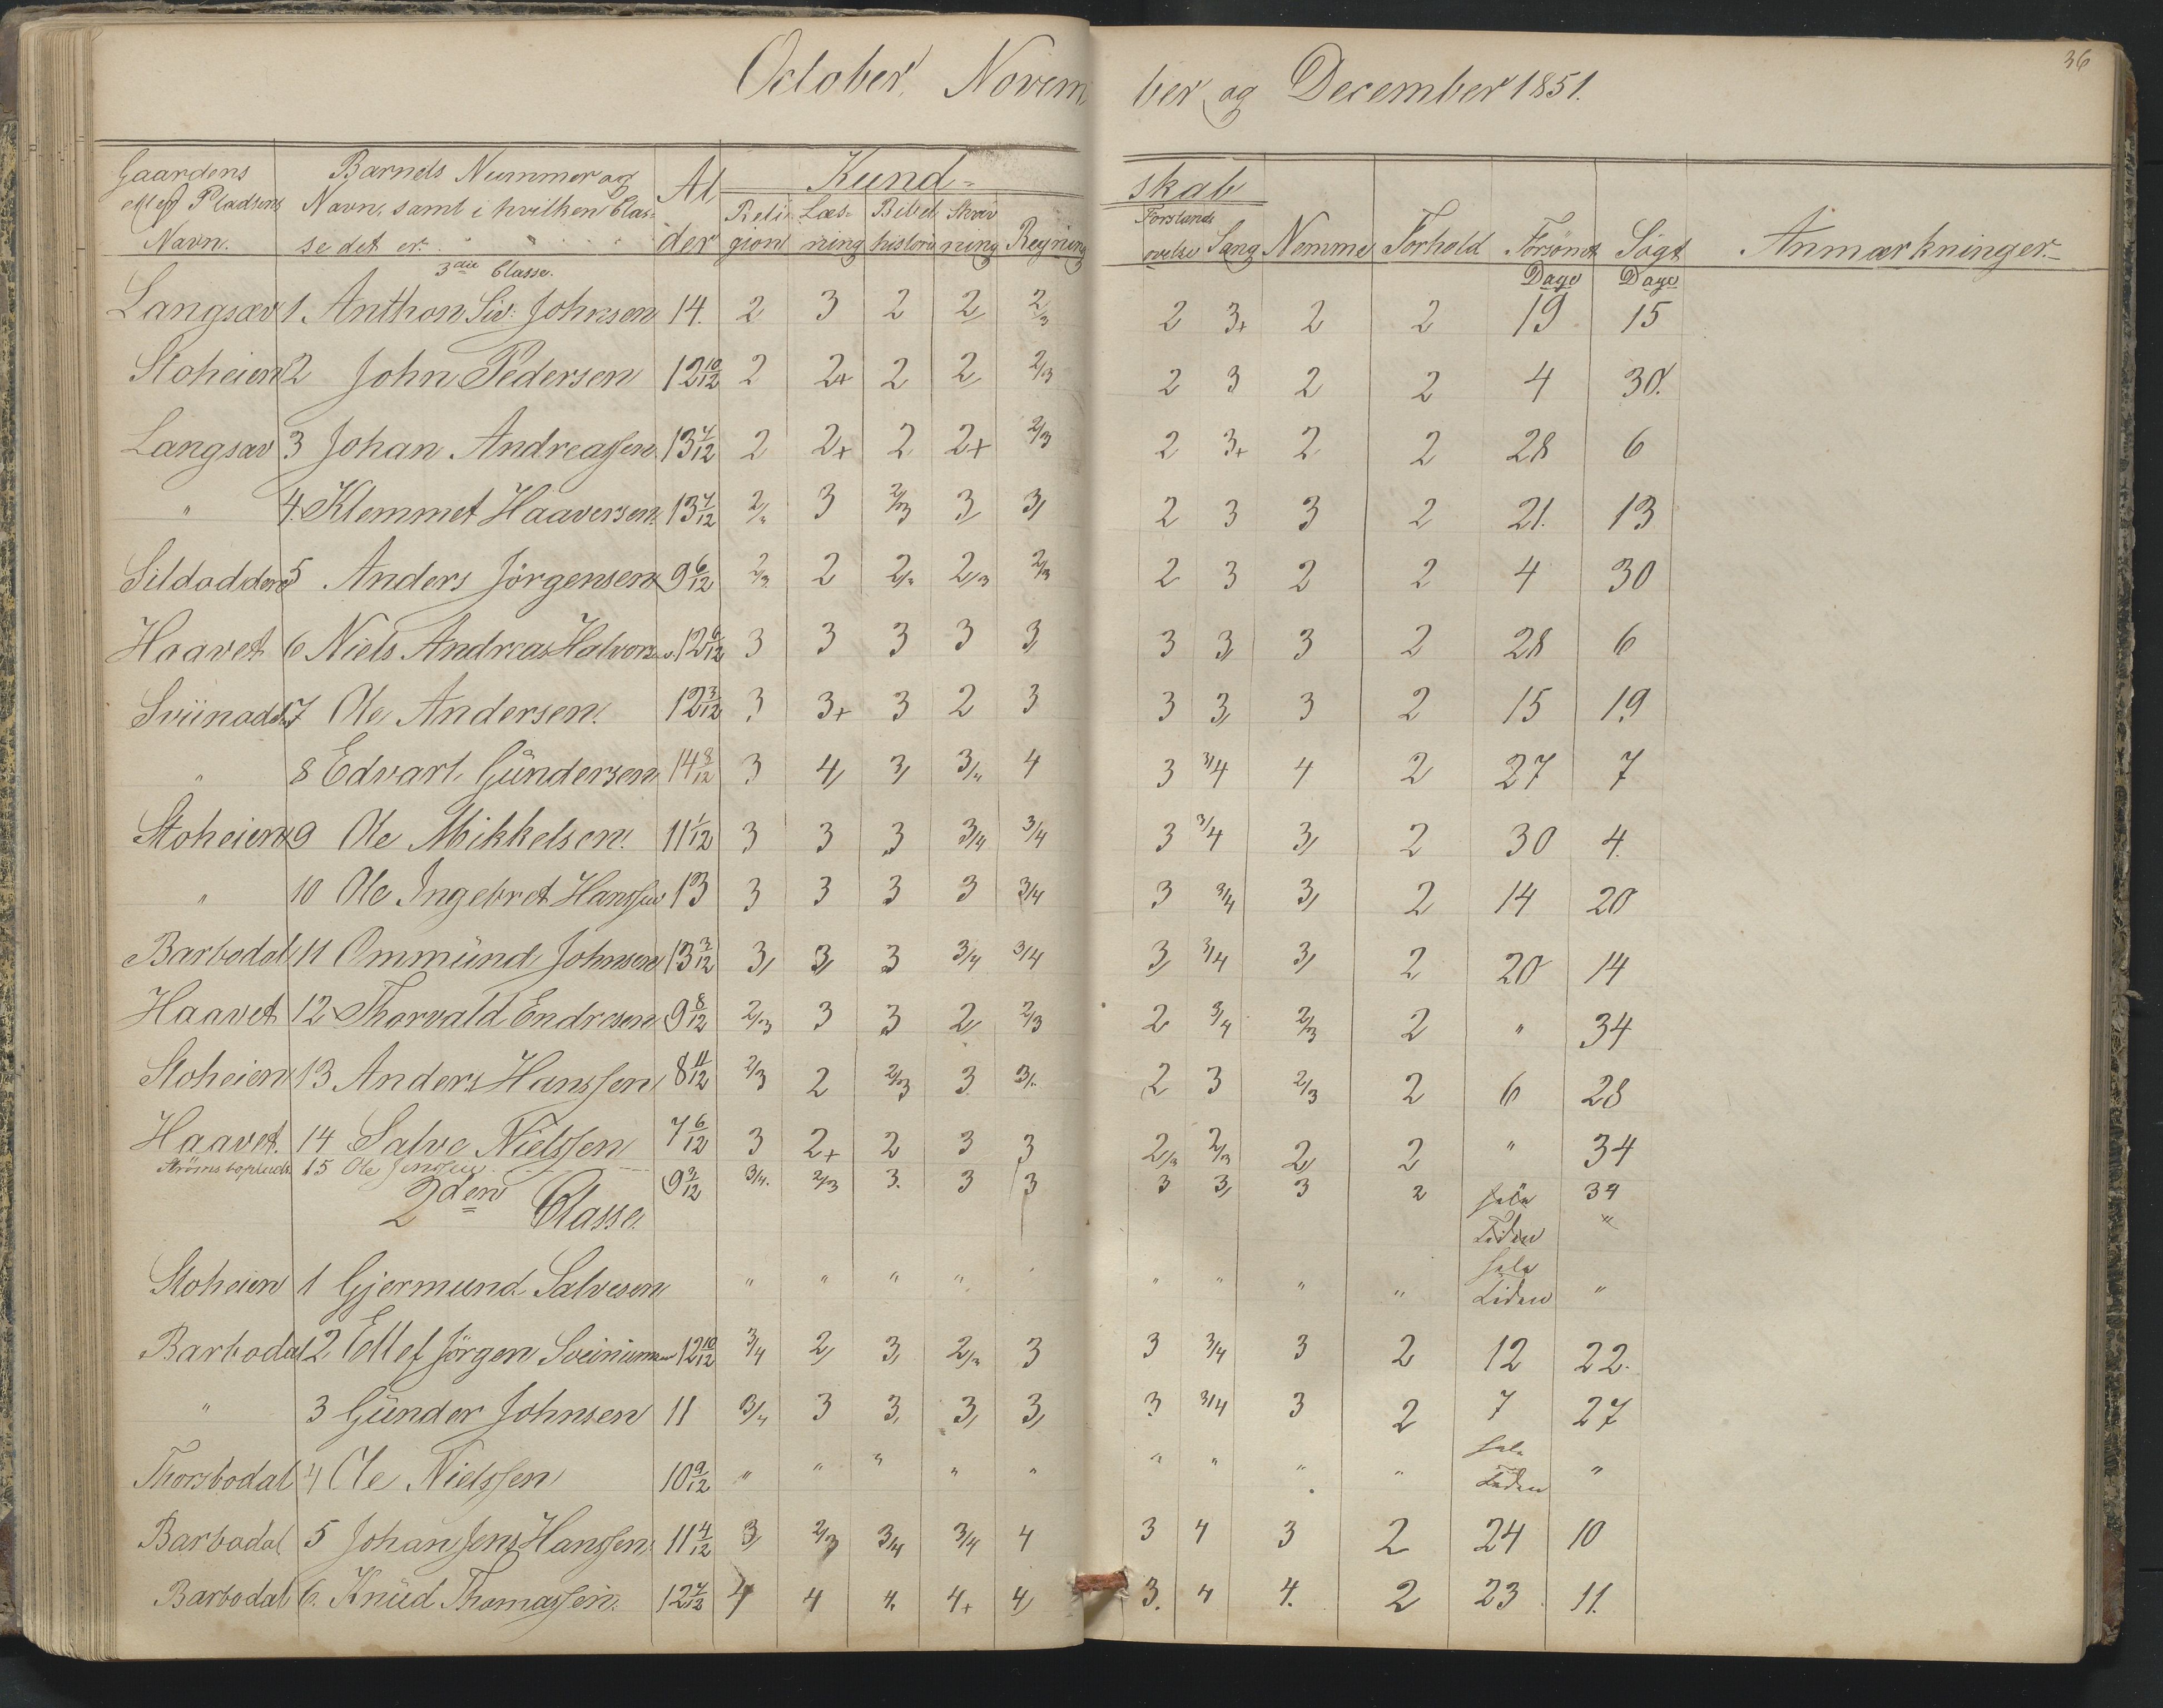 36
October, November og December 1851.
Gaardens eller Pladsens Navn. | Barnets Nummer og Navn, samt i hvilken Classe det er. | Alder | Kundskab | Nemme | Forhold | Forsömt | Sögt | Anmærkninger.
Religion | Læsning | Bibelhistorie | Skrivning | Regning | Forstands ovelse | Sang
3die Classe. | Dage | Dage
Langsæv 1 Anthon Siv: Johnsen 14. 2 3 2 2, 2/3 2 3+ 2 2 19 15
Stoheien 2 John Pedersen 12 10/12 2 2+ 2 2, 2/3 2 3 2 2 4 30.
Langsæv 3 Johan Andreassen 13 7/12 2 2+ 2 2+ 2/3 2 3+ 2 2 28 6
" 4. Klemmet Haaversen 13 7/12 2/" 3 2/3 3, 3, 2 3 3 2 21. 13
Sildodden 5 Anders Jörgensen 9 6/12 2/3 2 2/" 2/3 2/3 2 3 2 2 4 30
Haavet 6 Niels Andreas Halvors. 12 6/12 3 3 3 3 3, 3 3, 3 2 28 6
Sviinodd. 7 Ole Andersen. 12 3/12 3 3+ 3 2 3 3 3, 3 2 15 19
" 8 Edvart Gündersen 14 8/12 3 4, 3, 3/" 4 3 3/4 4 2 27 7
Stoheien 9 Ole Mikkelsen. 11 1/12 3 3 3 3/4 3/4 3 3/4 3, 2 30 4.
" 10 Ole Ingebret Hanssen 13 3 3 3 3 3/4 3 3/4 3, 2 14 20
Barbodal 11 Ommünd Johnsen 13 3/12 3, 3, 3 3/4 3/4 3, 3/4 3, 2 20 14
Haavet 12 Thorvald Endresen 9 8/12 2/3 3 3 2, 2/3 2 3/4 2/3 2 " 34
Stoheien 13 Anders Hanssen 8 11/12 2/3 2 2/3 3 3/. 2 3 2/3 2 6 28
Haavet. 14 Salve Nielssen 7 6/12 3 2+ 2 3 3 2/3 2/3 2, 2 " 34
15 Ole Jenssen 9 3/12 3/4. 2/3 3. 3 3 3 3, 3 2 hele Tiden 34 "
2den Classe.
Stoheien 1 Gjermund Salvesen " " " " " " " " hele Tiden "
Barbodal 2 Ellef Jörgen 12 10/12 3/4 2, 3, 2/3 3 3 3/4 3 2 12 22.
" 3 Günder Johnsen 11 3/4 3 3, 3, 3, 3 3/4 3 2 7 27
Thorsbodal 4 Ole Nielssen 10 9/12 " " " " " " " " " hele Tiden "
Barbodal 5 Johan Jens Hanssen 11 4/12 3, 2/3 3/4 3/4 4 3 4 3 2 24 10
Barbodal 6. Knüd Thomassen. 12 7/12 4 4 4. 4+ 4, 3. 4 4. 2 23 11.